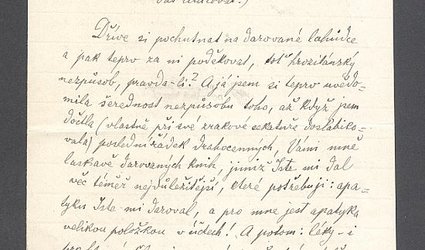 Dříve si pochutnat na darované lahůdce
a pak teprv za ni poděkovat, toť hrozitánský
nezpůsob, pravda-li? A já jsem si teprv uvědo-
mila šerednost nezpůsobu toho, až když jsem
dočtla (vlastně při své zrakové sekatuře doslabiko-
vala) poslední řádek drahocenných, Vámi mně
laskavě darovaných knih, jimiž Jste mi dal
věc téměř nejdůležitější, které potřebuji: apa-
tyku Jste mi daroval, a pro mne jest apatyka
velikou položkou v účtech! A potom: léky – i